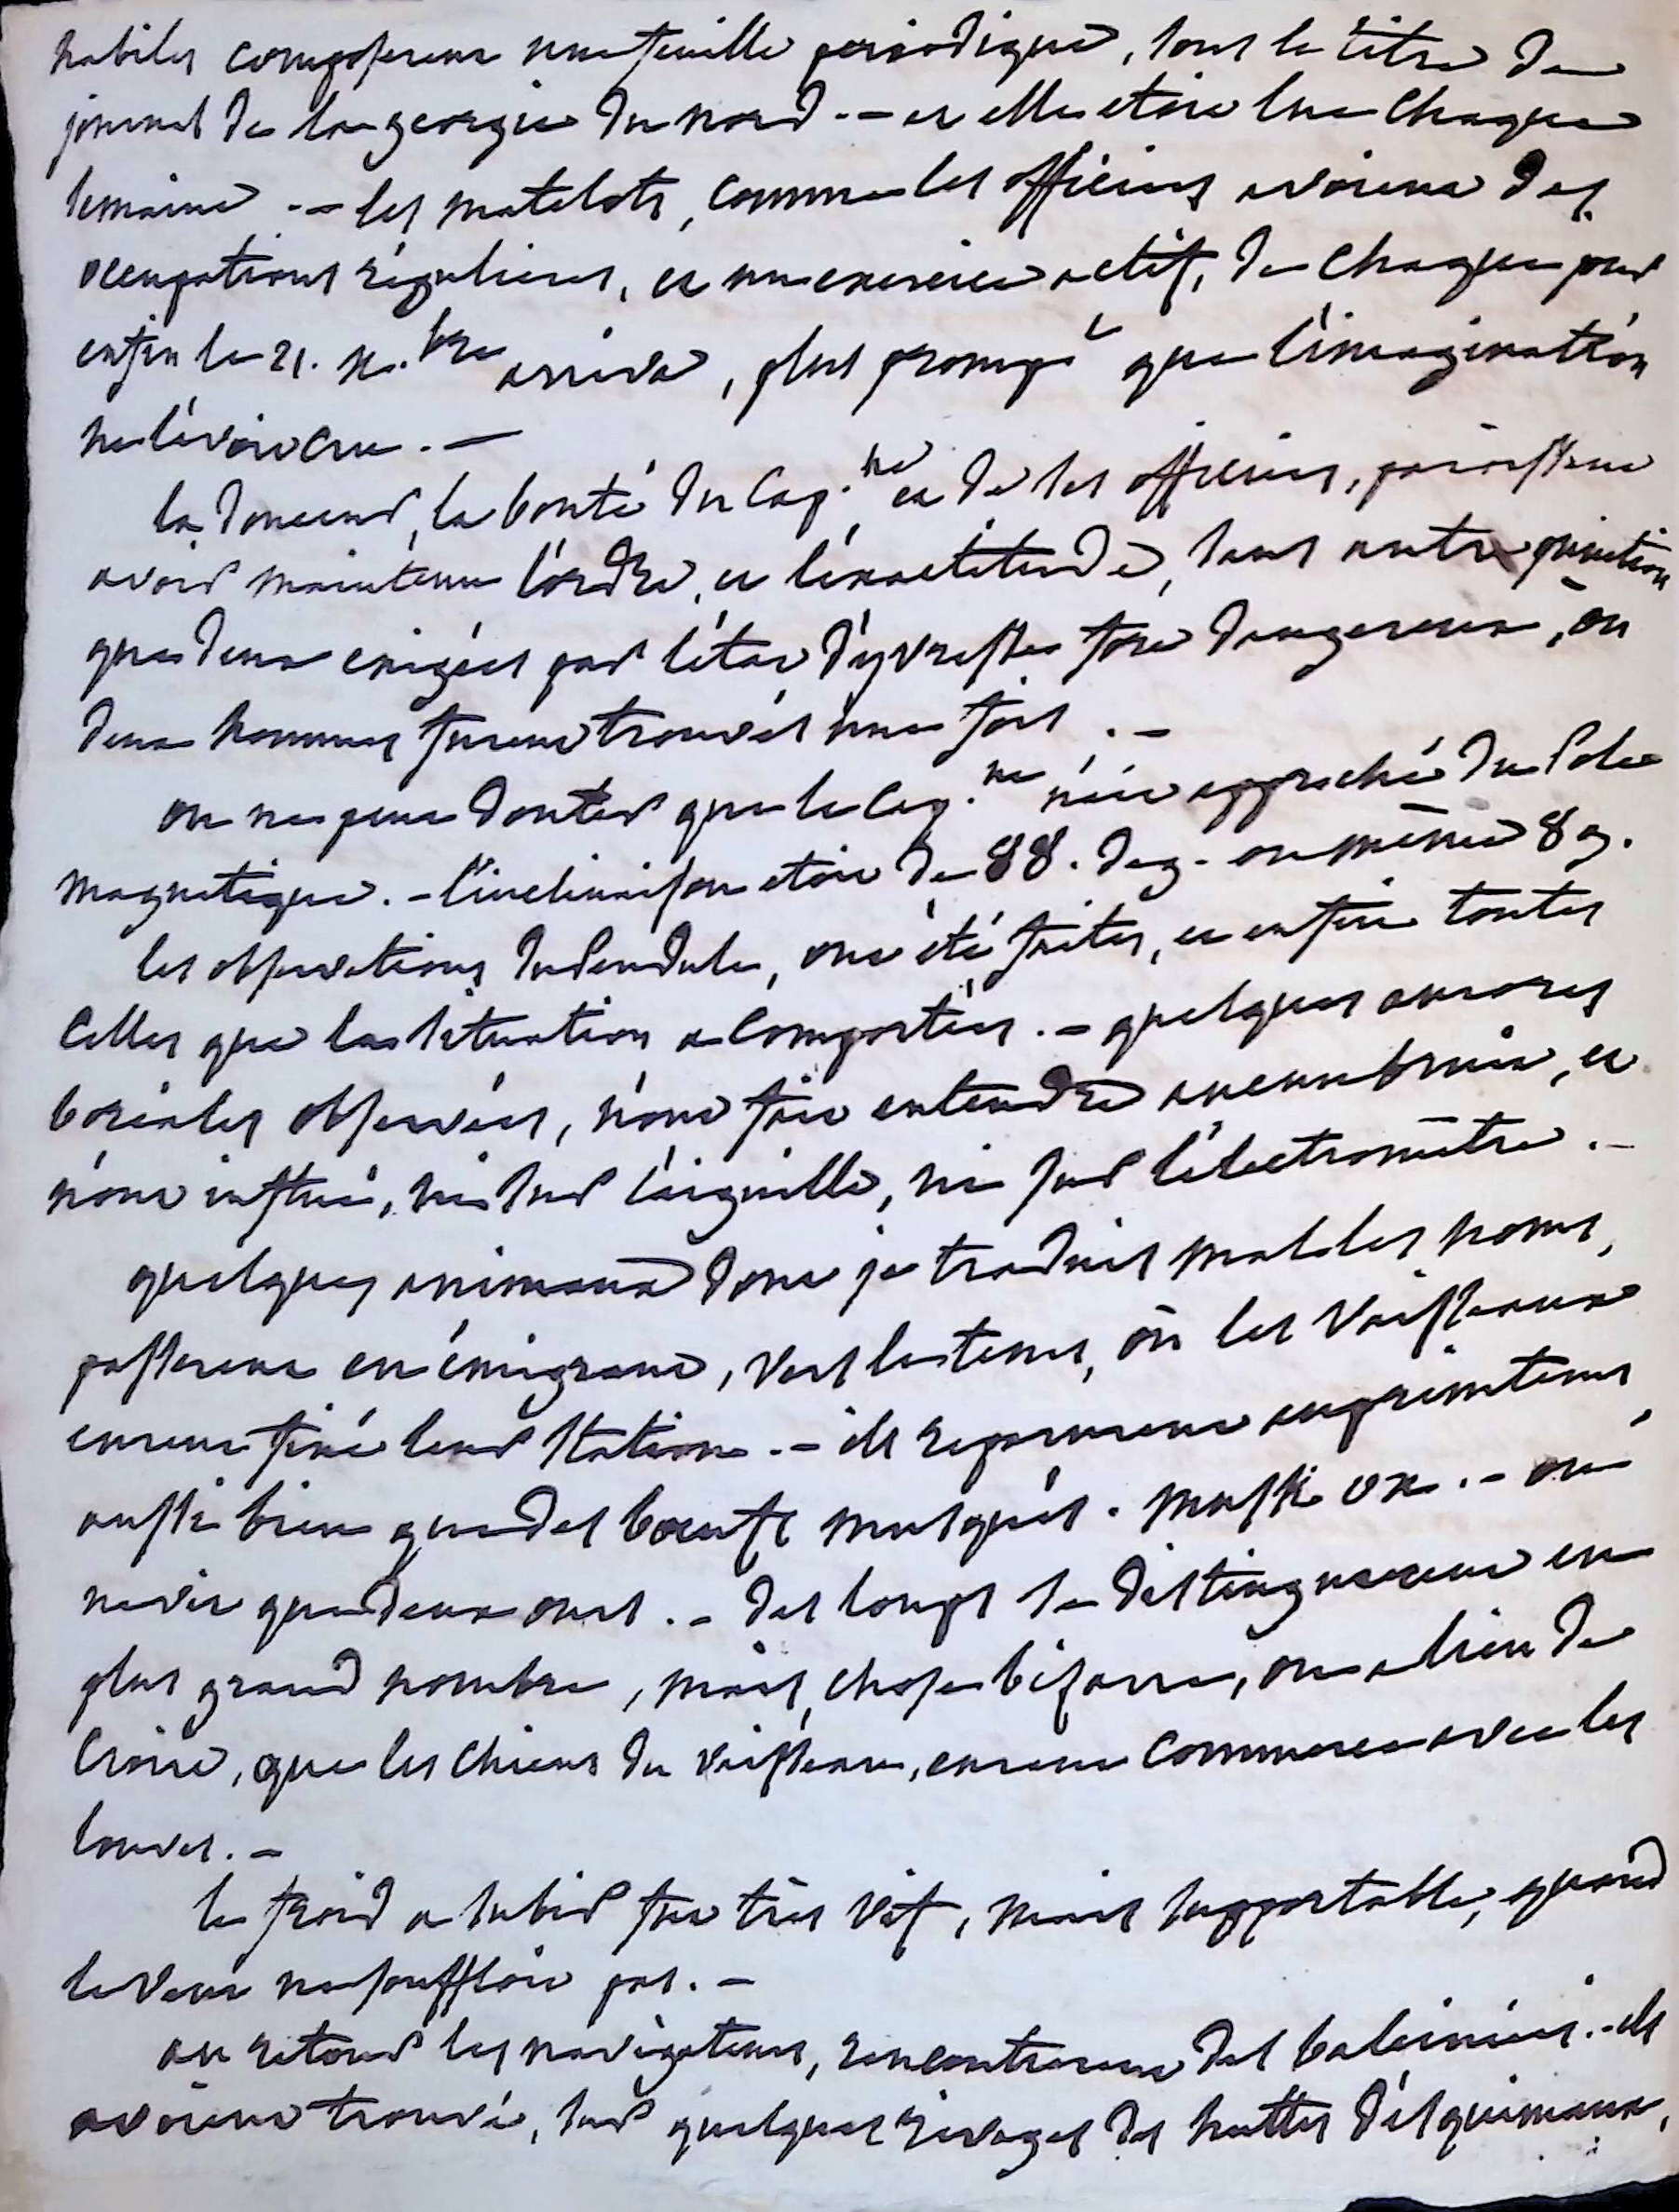 habiles composerent une feuille periodique, sous le titre de
journal de la georgie du nord. — et elle etoit lue chaque
semaine. — les matelots, comme les officiers avoient des
occupations régulieres, et un exercice actif, de chaque jour
enfin le 21. x.bre arriva, plus prompt que l'imagination
ne l'avoit cru. —
la douceur, la bonté du Cap.ne et de ses officiers, paroissent
avoir maintenu l'ordre, et l'exactitude, sans autre punition
que deux exigées par l'état d'yvresse fort dangereux, où
deux hommes furent trouvés une fois. —
on ne peut douter que le Cap.ne n'ait approché du Pole
magnetique. — l'inclinaison etoit de 88. deg. ou même 89.
les observations du Pendule, ont été faites, et enfin toutes
celles que la situation a comportées. — quelques aurores
boréales observées, n'ont fait entendre aucun bruit, et
n'ont influé, ni sur l'aiguille, ni sur l'électromètre. —
quelques animaux dont je traduis mal les noms,
passerent en émigrant, vers les terres, où les vaisseaux
eurent fixé leur station. — ils reparurent au printems,
aussi bien que des boeufs musqués. musk ox. — on
ne vit que deux ours. — des loups se distinguerent en
plus grand nombre, mais, chose bisarre, on a lieu de
croire, que les chiens du vaisseau, eurent commerce avec les
louves. —
le froid a subir fut très vif, mais supportable, quand
le vent ne souffloit pas. —
au retour les navigateurs, rencontrerent des baleiniers. — ils
avoient trouvé, sur quelques rivages des huttes d'esquimaux,